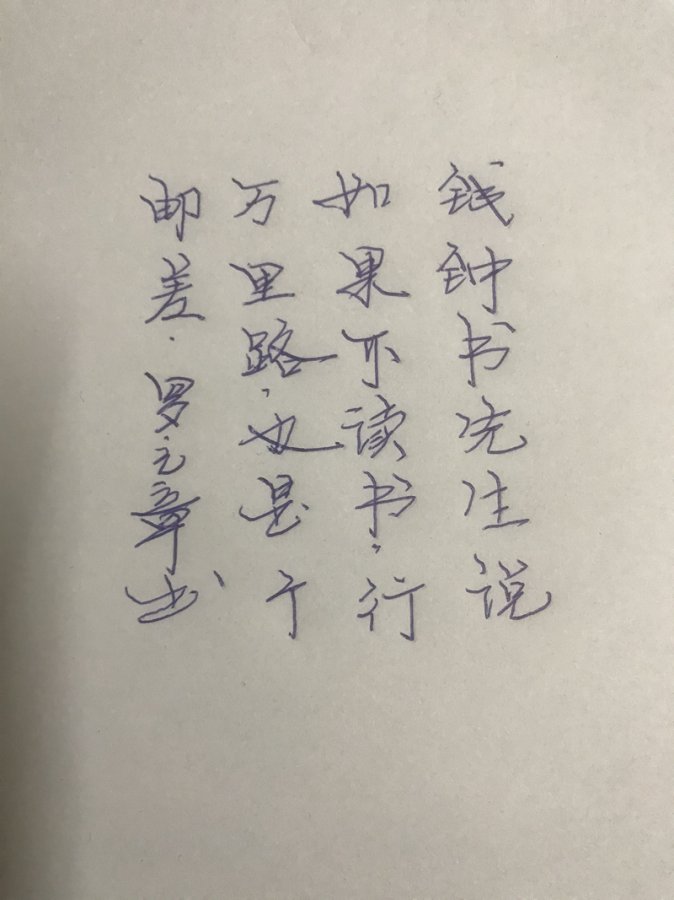 钱钟书先生说
如果不读书,行
万里路,也是个
邮差.罗之章书